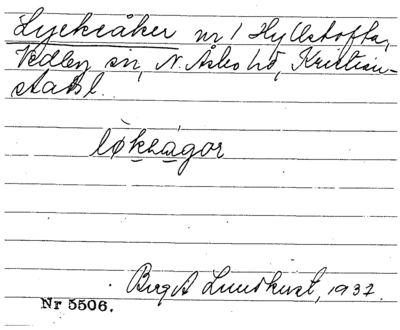 Lyckeåker nr 1 Hyllstofta,
Vedby sn, N. Åsbo hd, Kristian-
stads l.
løkeågor
Birgit Lundkvist, 1937.
Nr 5506.